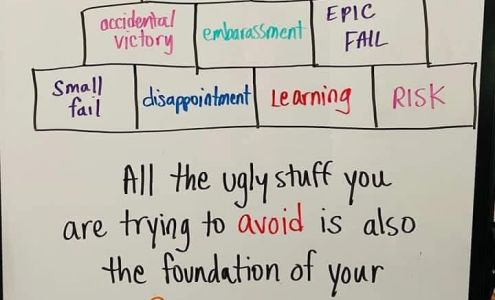 accidental victory
embarassment
EPIC FAIL
Small fail
disappointment
Learning
RISK
All the ugly stuff you
are trying to avoid is also
the foundation of your